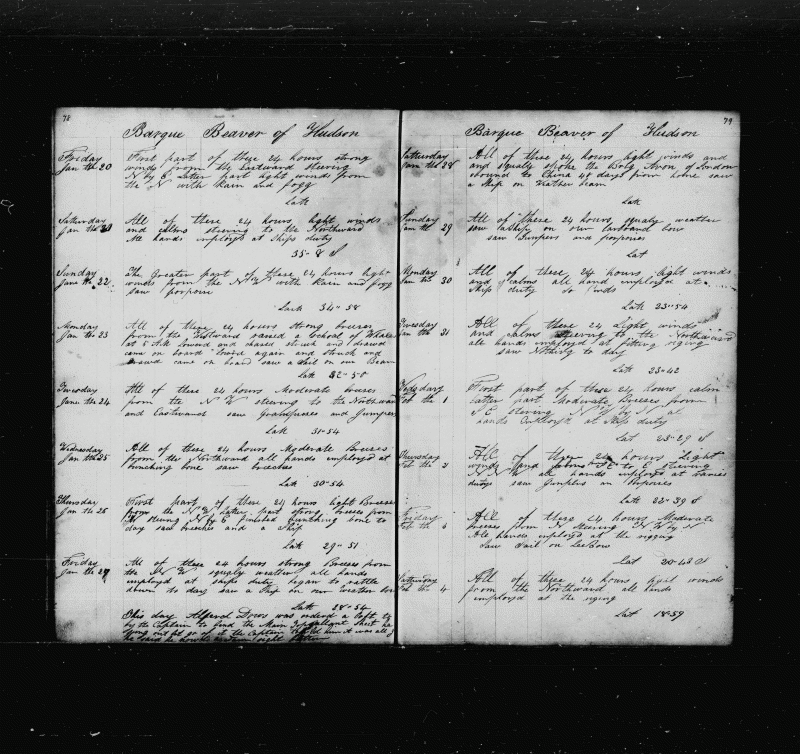 78
Barque Beaver of Hudson
Friday First part of these 24 hours strong
Jan th 20 winds from the Eastward steering
N by E Latter part light winds from
the N with Rain and fogg
Latt
Saturday All of these 24 hours light winds
Jan th and calms steering to the Northward
All hands imployd at Ships duty
35-8 S
Sunday The Greater part of these 24 hours light
Jan th 22 winds from the N W with Rain and fogg
saw porpoise
Latt 34-58
Monday All of these 24 hours strong breeses
Jan th 23 from the Eastward raised a School of
at lowerd and chased struck and
came on board lowerd again and struck and
came on board saw a sail on our Beam
Latt 32-50
Tuesday All of these 24 hours Moderate breeses
Jan th 24 from the N W steering to the Northward
and Eastward saw Grampuses and Jumpers
Latt 31-54
Wednesday All of these 24 hours Moderate Breeses
Jan th 25 from the Northward all hands imployd at
bunching bone saw breeches
Latt 30-54
Thursday First part of these 24 hours light Breeses
Jan th 26 from the N W Latter part strong breeses from
N by E finished bunching bone to
day saw breeches and a Ship
Latt 29-51
Friday All of these 24 hours strong Breeses from
Jan th 27 the N W squaly weather all hands
imployd at ships duty began to rattle
down to day saw a Sap on our weather bow
Latt 28-56
This day Alferd was orderd a loft
by the Captain to find the Main Gallant Sheet
out of it the Captain told him it was all
he said he

79
Barque Beaver of Hudson
Saturday All of these 24 hours light winds and
Jan th 28 and squaly spoke the Avon of London
bound to China 48 days from home saw
a Ship on Weather beam
Latt
Sunday All of these 24 hours squaly weather
Jan th 29 saw a Ship on our larboard bow
saw Jumpers and porpoises
Lat
Monday All of these 24 hours light winds
Jan th 30 and calms all hand imployed at
Ships duty
Latt 23-54
Tuesday All of these 24 hours Light winds
Jan th 31 and calms steering to the Northward
all hands imployed at fitting riging
saw Nothing to day
Latt 23-42
Wedesday First part of these 24 hours calm
Feb th 1 Latter part Moderate Breeses from
S E steering N W by N all
hands imployd at Ship duty
Lat 23-29 S
Thursday All of these 24 hours Light
Feb th 2 winds and calms S E to E steering
N N W all hands imployed at
dutys saw Jumpers an Porpoises
Latt 22-39 S
Friday All of these 24 hours Moderate
Feb th breeses from Steering N W by N
All hands imployed at the rigging
saw sail on Lee bow
Lat 20-43 S
Saturday All of these 24 hours light winds
Feb th 4 from the Northward all hands
imployed at the riging
Lat 18-59